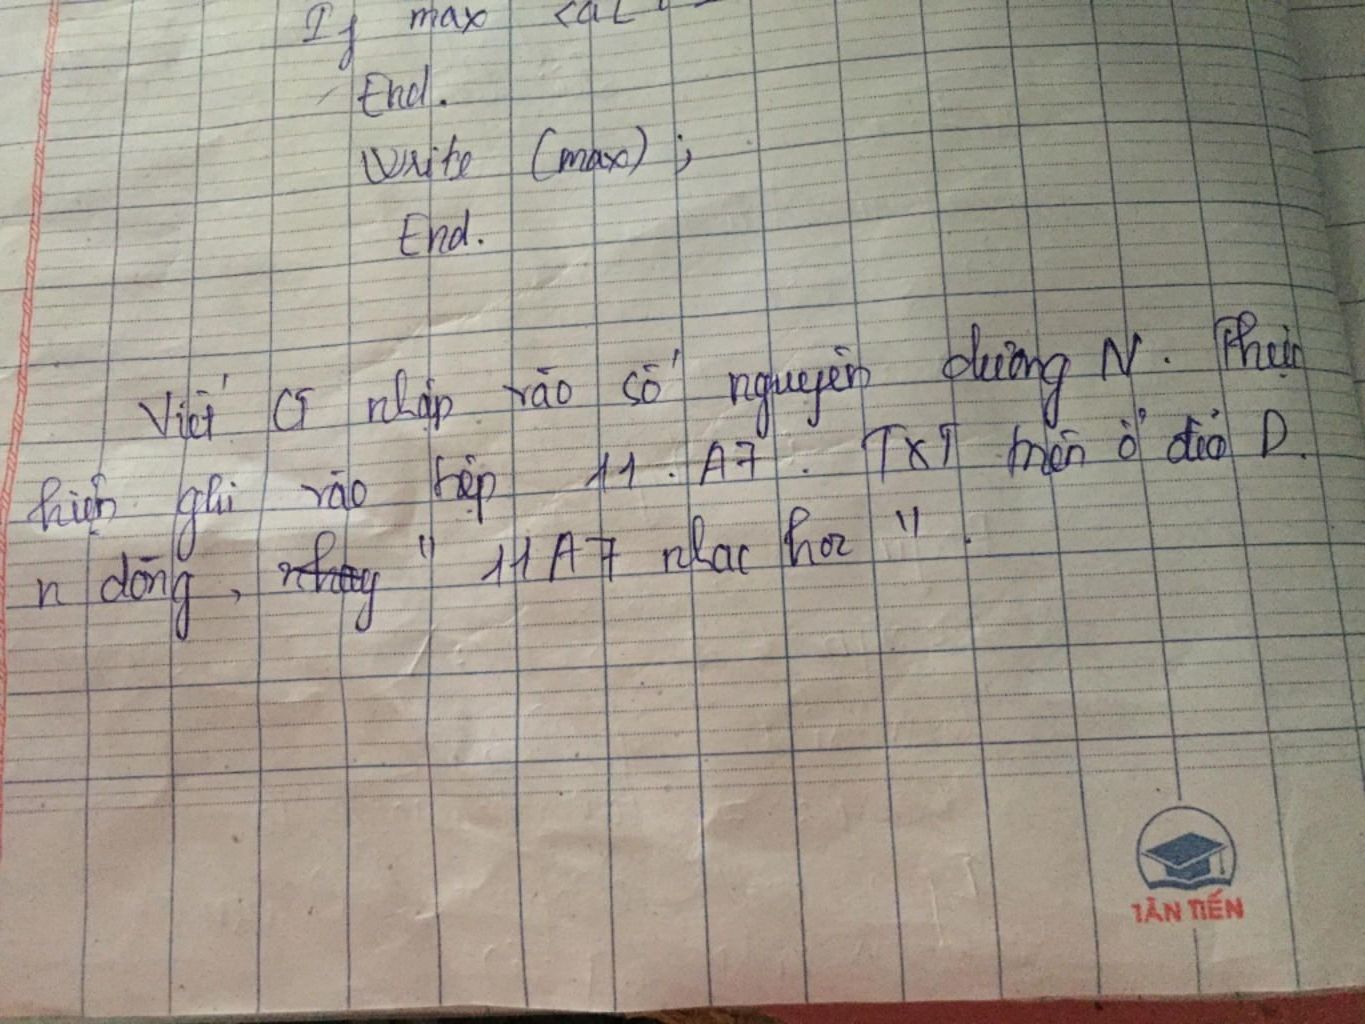 If max <a[
End.
Write (max);
End.
Viết CT nhập vào số nguyên dương N. Thực
hiện ghi vào tệp 11.A7.TXT trên ổ đĩa D.
n dòng, " 11A7 nhac hoc ".
TÂN TIẾN